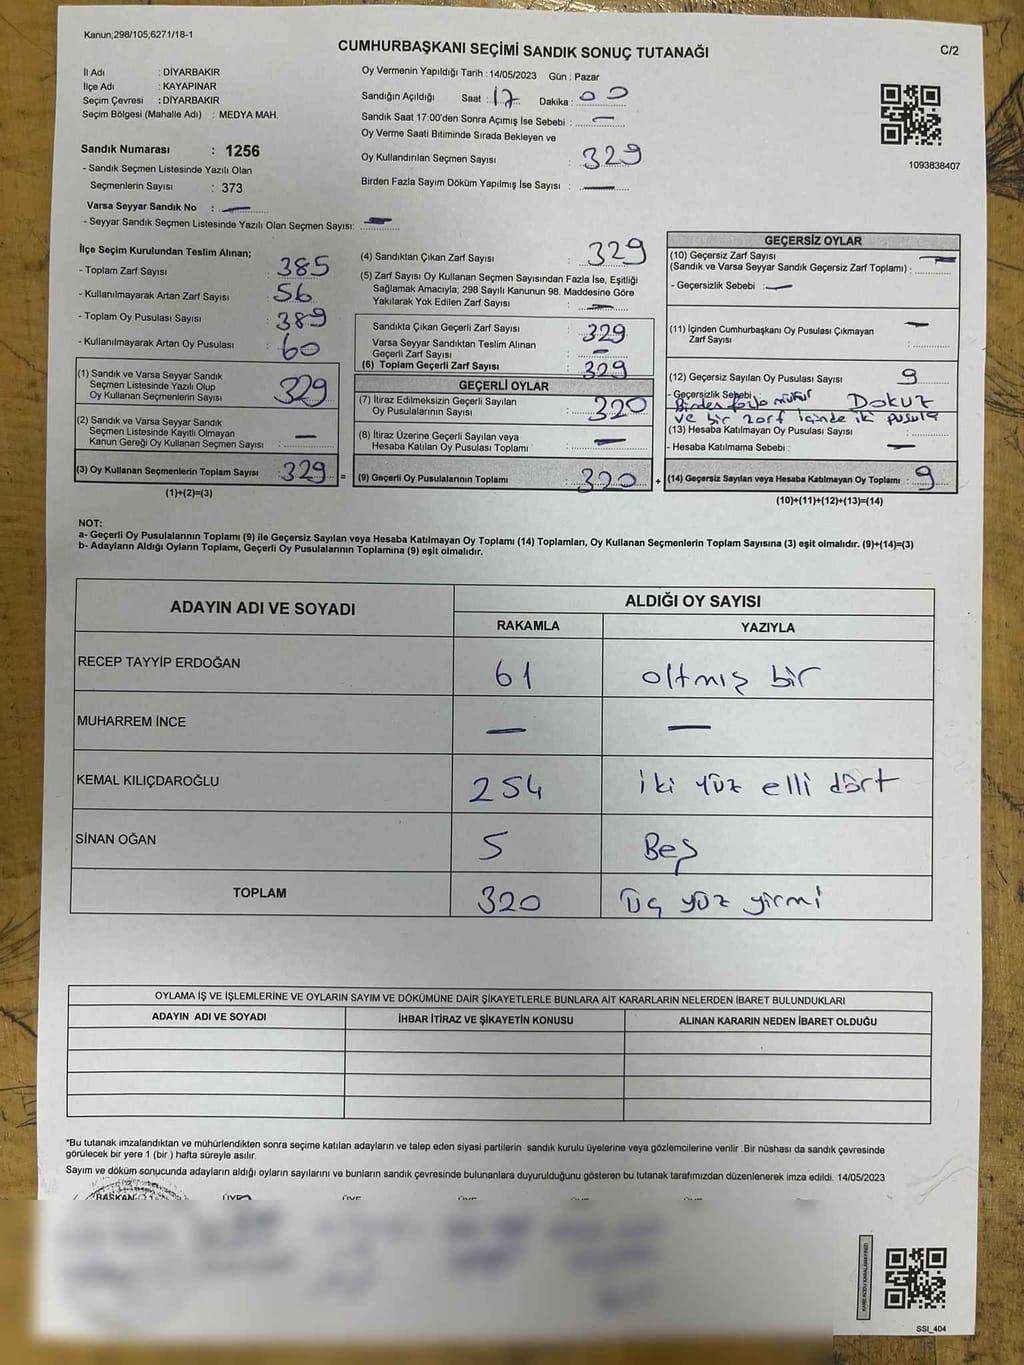 Kanun;298/105,6271/18-1
CUMHURBAŞKANI SEÇİMİ SANDIK SONUÇ TUTANAĞI
C/2
İl Adı : DİYARBAKIR
İlçe Adı : KAYAPINAR
Seçim Çevresi : DİYARBAKIR
Seçim Bölgesi (Mahalle Adı) : MEDYA MAH.
Sandık Numarası : 1256
- Sandık Seçmen Listesinde Yazılı Olan
Seçmenlerin Sayısı : 373
Varsa Seyyar Sandık No : —
- Seyyar Sandık Seçmen Listesinde Yazılı Olan Seçmen Sayısı: —
Oy Vermenin Yapıldığı Tarih : 14/05/2023 Gün : Pazar
Sandığın Açıldığı Saat : 17 Dakika : 00
Sandık Saat 17:00'den Sonra Açımış İse Sebebi : —
Oy Verme Saati Bitiminde Sırada Bekleyen ve
Oy Kullandırılan Seçmen Sayısı : 329
Birden Fazla Sayım Döküm Yapılmış İse Sayısı : —
1093838407
İlçe Seçim Kurulundan Teslim Alınan;
- Toplam Zarf Sayısı : 385
- Kullanılmayarak Artan Zarf Sayısı : 56
- Toplam Oy Pusulası Sayısı : 389
- Kullanılmayarak Artan Oy Pusulası : 60
(1) Sandık ve Varsa Seyyar Sandık
Seçmen Listesinde Yazılı Olup
Oy Kullanan Seçmenlerin Sayısı : 329
(2) Sandık ve Varsa Seyyar Sandık
Seçmen Listesinde Kayıtlı Olmayan
Kanun Gereği Oy Kullanan Seçmen Sayısı : —
(3) Oy Kullanan Seçmenlerin Toplam Sayısı : 329 =
(1)+(2)=(3)
(4) Sandıktan Çıkan Zarf Sayısı : 329
(5) Zarf Sayısı Oy Kullanan Seçmen Sayısından Fazla İse, Eşitliği
Sağlamak Amacıyla; 298 Sayılı Kanunun 98. Maddesine Göre
Yakılarak Yok Edilen Zarf Sayısı : —
Sandıkta Çıkan Geçerli Zarf Sayısı : 329
Varsa Seyyar Sandıktan Teslim Alınan
Geçerli Zarf Sayısı : —
(6) Toplam Geçerli Zarf Sayısı : 329
GEÇERLİ OYLAR
(7) İtiraz Edilmeksizin Geçerli Sayılan
Oy Pusulalarının Sayısı : 320
(8) İtiraz Üzerine Geçerli Sayılan veya
Hesaba Katılan Oy Pusulası Toplamı : —
(9) Geçerli Oy Pusulalarının Toplamı : 320 +
GEÇERSİZ OYLAR
(10) Geçersiz Zarf Sayısı —
(Sandık ve Varsa Seyyar Sandık Geçersiz Zarf Toplamı) :
- Geçersizlik Sebebi : —
(11) İçinden Cumhurbaşkanı Oy Pusulası Çıkmayan —
Zarf Sayısı :
(12) Geçersiz Sayılan Oy Pusulası Sayısı : 9
- Geçersizlik Sebebi : Dokuz
Birden fazla mühür
ve bir zarf içinde iki pusula
(13) Hesaba Katılmayan Oy Pusulası Sayısı :
- Hesaba Katılmama Sebebi : —
(14) Geçersiz Sayılan veya Hesaba Katılmayan Oy Toplamı : 9
(10)+(11)+(12)+(13)=(14)
NOT:
a- Geçerli Oy Pusulalarının Toplamı (9) ile Geçersiz Sayılan veya Hesaba Katılmayan Oy Toplamı (14) Toplamları, Oy Kullanan Seçmenlerin Toplam Sayısına (3) eşit olmalıdır. (9)+(14)=(3)
b- Adayların Aldığı Oyların Toplamı, Geçerli Oy Pusulalarının Toplamına (9) eşit olmalıdır.
ADAYIN ADI VE SOYADI
ALDIĞI OY SAYISI
RAKAMLA YAZIYLA
RECEP TAYYİP ERDOĞAN 61 altmış bir
MUHARREM İNCE — —
KEMAL KILIÇDAROĞLU 254 iki yüz elli dört
SİNAN OĞAN 5 Beş
TOPLAM 320 üç yüz yirmi
OYLAMA İŞ VE İŞLEMLERİNE VE OYLARIN SAYIM VE DÖKÜMÜNE DAİR ŞİKAYETLERLE BUNLARA AİT KARARLARIN NELERDEN İBARET BULUNDUKLARI
ADAYIN ADI VE SOYADI İHBAR İTİRAZ VE ŞİKAYETİN KONUSU ALINAN KARARIN NEDEN İBARET OLDUĞU
*Bu tutanak imzalandıktan ve mühürlendikten sonra seçime katılan adayların ve talep eden siyasi partilerin sandık kurulu üyelerine veya gözlemcilerine verilir. Bir nüshası da sandık çevresinde
görülecek bir yere 1 (bir) hafta süreyle asılır.
Sayım ve döküm sonucunda adayların aldığı oyların sayılarını ve bunların sandık çevresinde bulunanlara duyurulduğunu gösteren bu tutanak tarafımızdan düzenlenerek imza edildi. 14/05/2023
BAŞKAN ÜYE ÜYE ÜYE ÜYE ÜYE
SSI_404